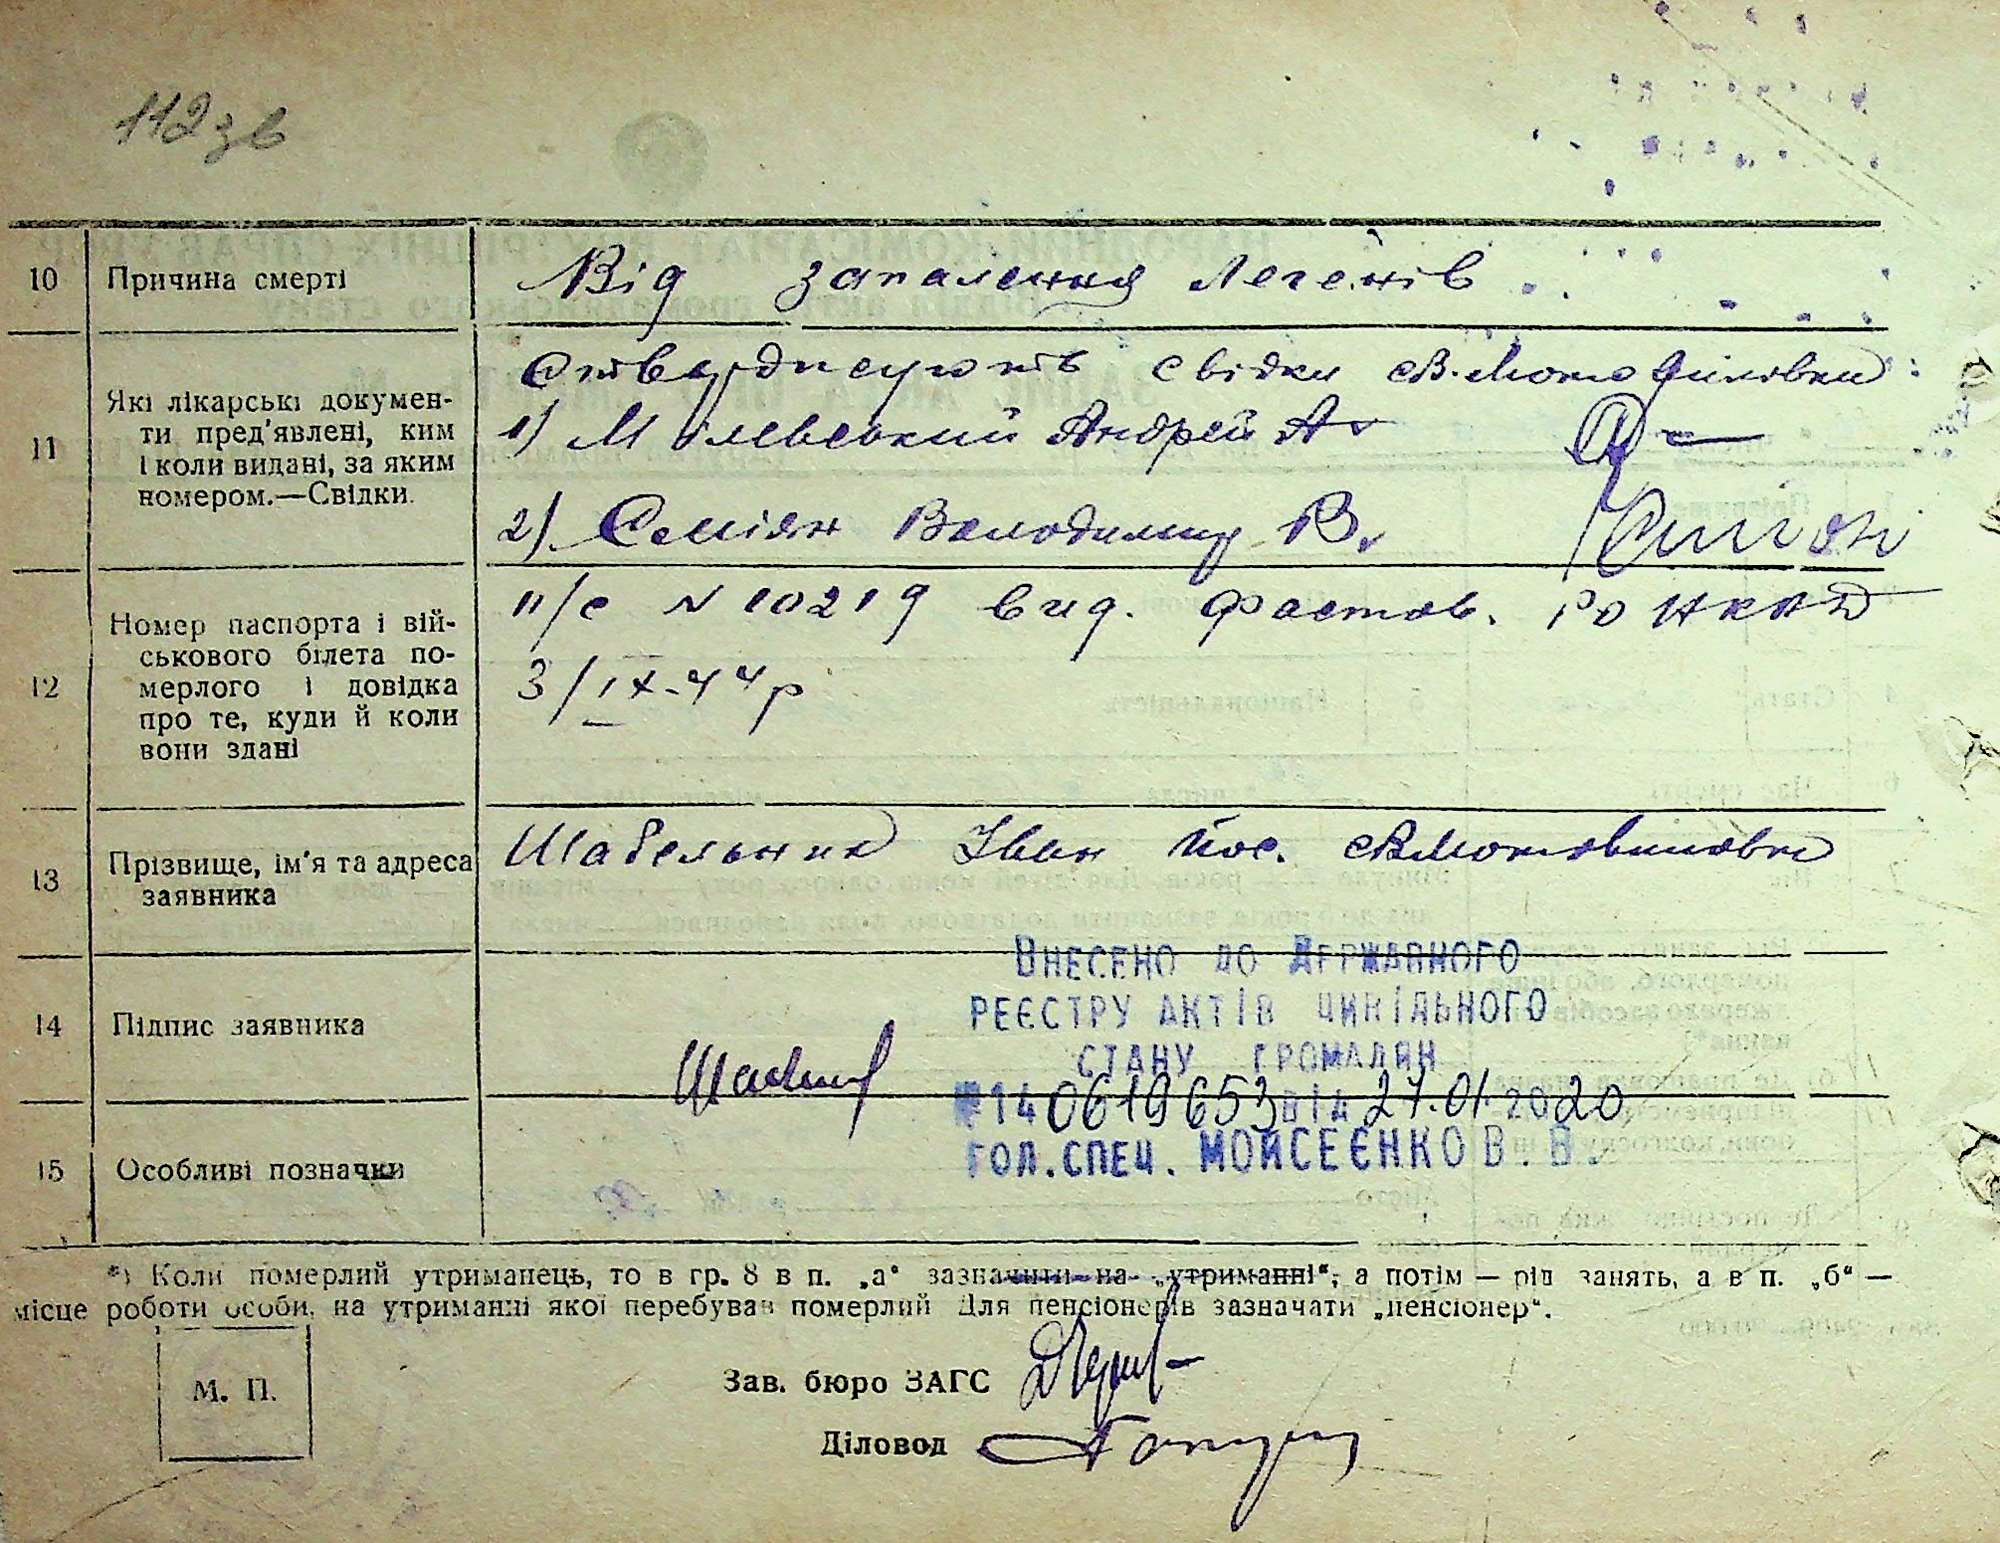 112 зв
10 Причина смерті Від запалення легенів
11 Які лікарські документи пред'явлені, ким і коли видані, за яким номером.—Свідки.
Стверджують свідки с В. Мотовилівки
1) Мілевський Андрей А.
2) Семіян Володимир В.
12 Номер паспорта і військового білета померлого і довідка про те, куди й коли вони здані
п/с N 10219 вид. Фастов. РО НКВД
3/IX-44 р
13 Прізвище, ім'я та адреса заявника Шабельник Іван Йос. с В Мотовиловка
14 Підпис заявника
Внесено до Державного
реєстру актів цивільного
стану громадян
№ 140619653 від 27.01.2020
гол. спец. Мойсеєнко В. В.
15 Особливі позначки
*) Коли померлий утриманець, то в гр. 8 в п. „а“ зазначити на „утриманні“, а потім — рід занять, а в п. „б“ —
місце роботи особи, на утриманні якої перебував померлий Для пенсіонерів зазначати „пенсіонер“.
М. П.
Зав. бюро ЗАГС
Діловод